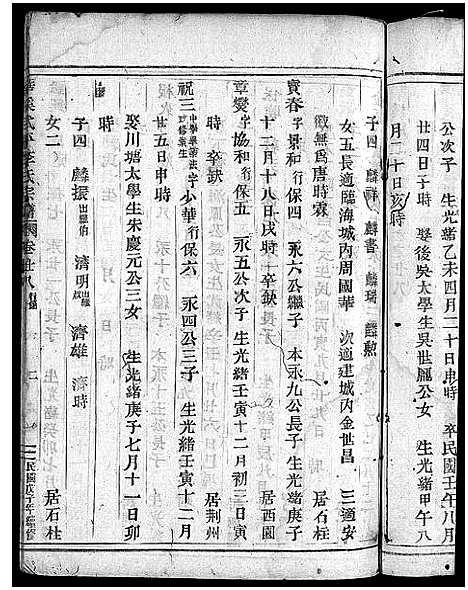 公次子　生光緒乙未四月二十日申時　卒民國壬午八月
廿四日子時　娶後吳太學生吳世胤公女　生光緒甲午八
月二十日亥時
子四　麟祥　麟書　麟瑞　麟勲
女五長適臨海城內周國華　次適建城內金世昌　三適安
徽無爲唐時霖　居石柱
寶春字景和行保四　永六公繼子　本永九公長子　生光緒庚子
十二月十八日戌時　卒缺　居西園
章燮字協和行保五　永五公次子　生光緒壬寅十二月初三日寅
時　卒缺　居荆州
祝三　字少華行保六　永四公三子　生光緒壬寅十二月
廿五日申時
娶川塘太學生朱慶元公三女　生光緒庚子七月十一日卯
時
子四　麟振出繼伯　濟明出繼　濟雄　濟時
女二　居石柱
民國戊子年續修